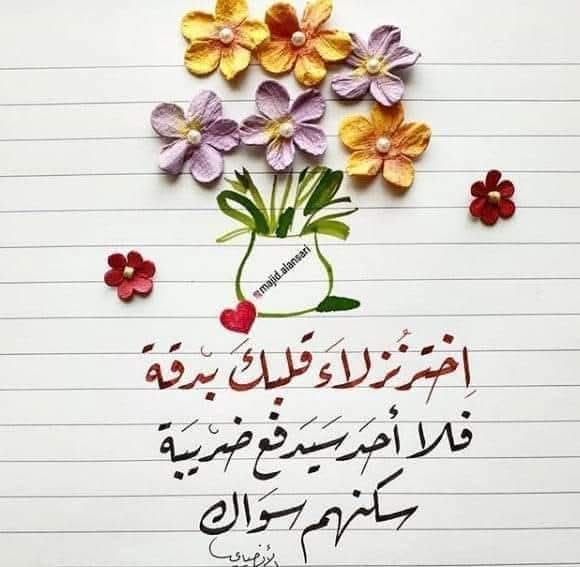 majid.alansari
اِختر نُزلاءَ قلبكَ بدقة
فلا أحد سَيَدفع ضريبَة
سكنهم سوَاك
الأنصاري